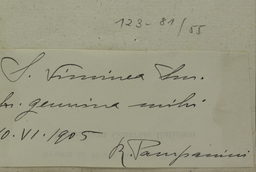 123-81/55
S. viminea Sm.
h. genuina mihi
0. VI. 1905
R. Pampanini